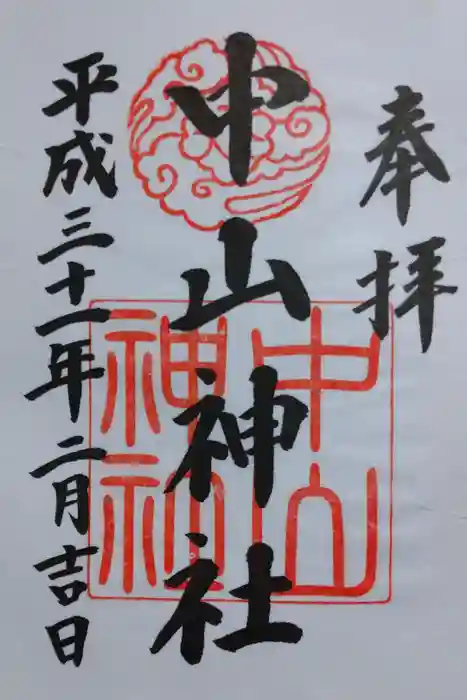 奉拝
中山神社
平成三十一年二月吉日
中山神社